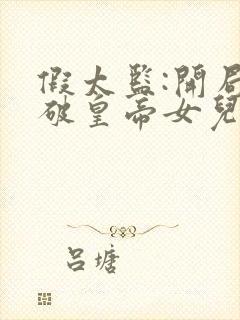 假太監:開局
破皇帝女兒
呂塘